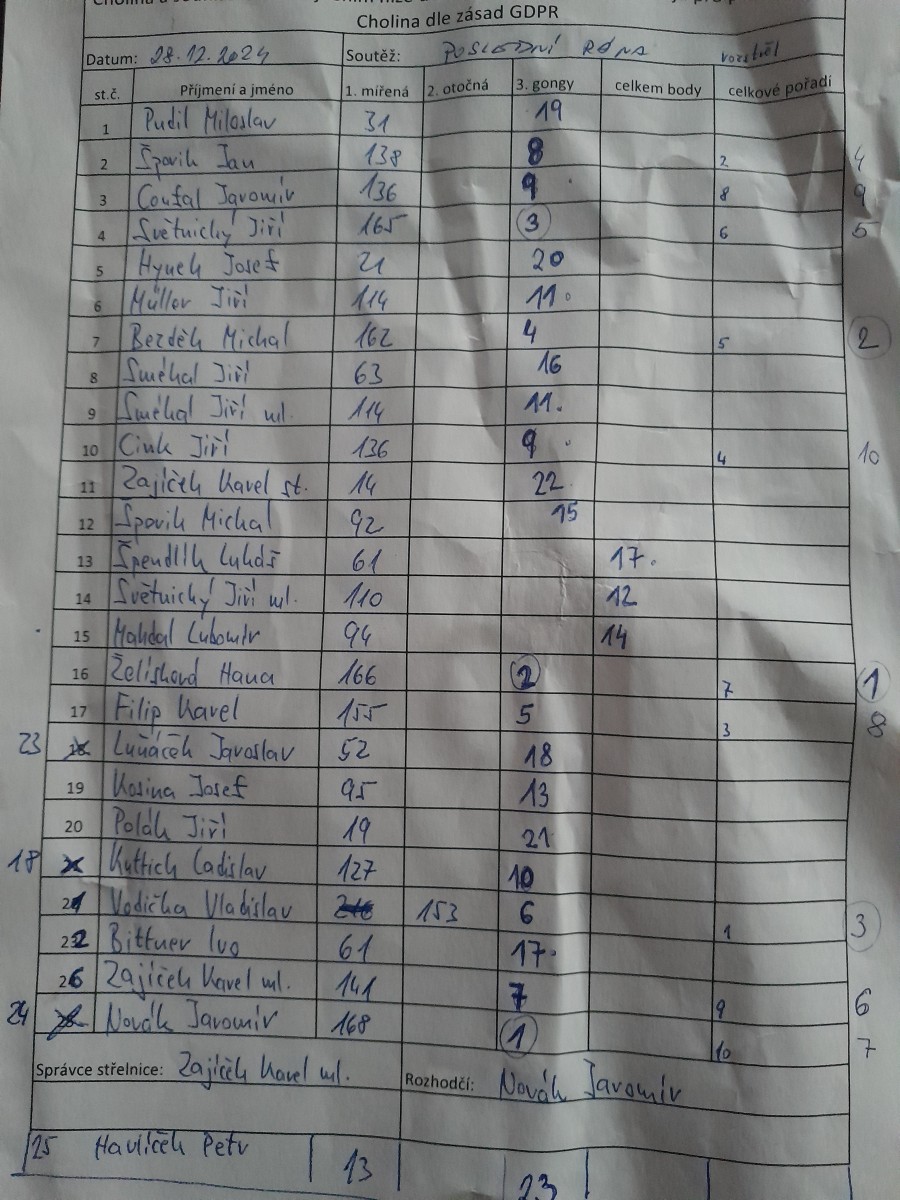 Cholina dle zásad GDPR
Datum: 28.12.2024 Soutěž: POSLEDNÍ RÁNA rozstřel
st.č. Příjmení a jméno 1. mířená 2. otočná 3. gongy celkem body celkové pořadí
1 Pudil Miloslav 31 19
2 Spovik Jan 138 8 2 4
3 Coufal Jaromír 136 9 8 9
4 Světnický Jiří 165 3 6 5
5 Hynek Josef 21 20
6 Müller Jiří 114 11
7 Bezděk Michal 162 4 5 2
8 Smékal Jiří 63 16
9 Smékal Jiří ml. 114 11.
10 Cink Jiří 136 9 4 10
11 Zajíček Karel st. 14 22
12 Spovik Michal 92 15
13 Špendlík Lukáš 61 17.
14 Světnický Jiří ml. 110 12
15 Mahdal Lubomír 94 14
16 Želísková Hana 166 2 7 1
17 Filip Karel 155 5 3 8
23 Luňáček Jaroslav 52 18
19 Kosina Josef 95 13
20 Polák Jiří 19 21
18 Kuttich Ladislav 127 10
21 Vodička Vladislav 153 6 1 3
22 Bittner Ivo 61 17.
26 Zajíček Karel ml. 141 7 9 6
24 Novák Jaromír 168 1 10 7
Správce střelnice: Zajíček Karel ml. Rozhodčí: Novák Jaromír
25 Havlíček Petr 13 23